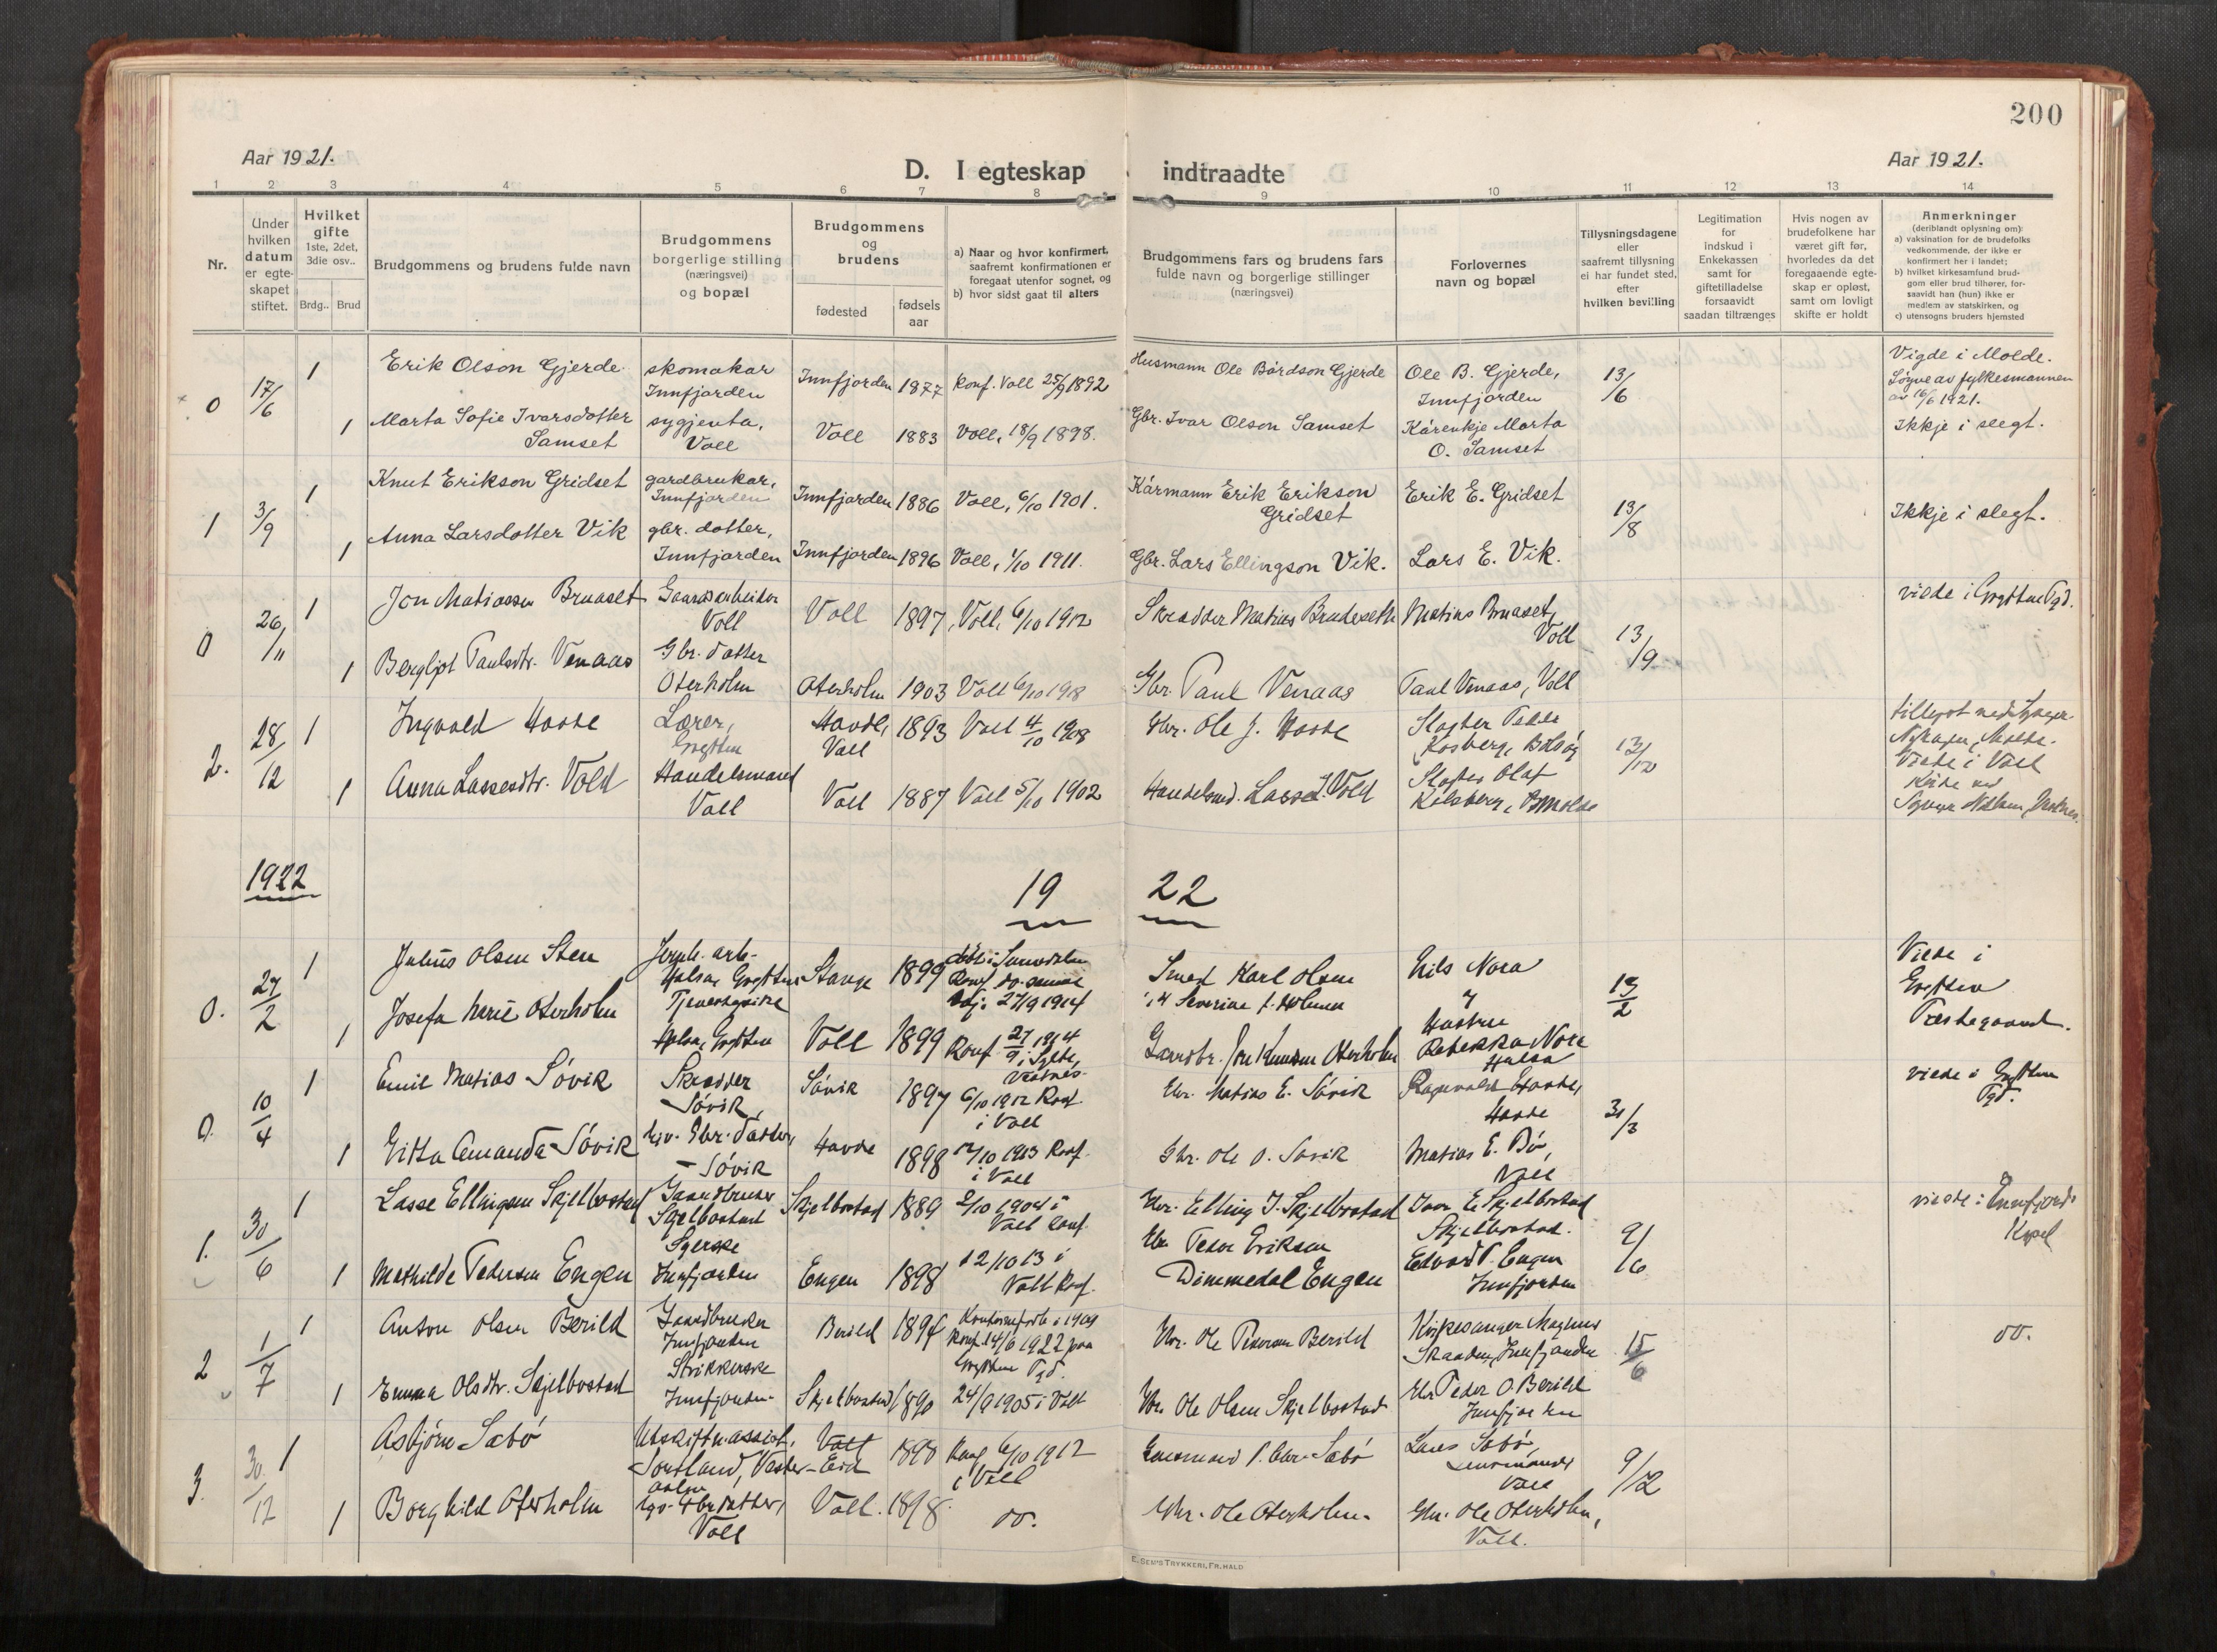 200
Aar 1921.
D. I egteskap indtraadte
Aar 1921.
1 2 3 4 5 6 7 8 9 10 11 12 13 14
Nr.
Under hvilken datum er egteskapet stiftet.
Hvilket gifte 1ste, 2det, 3die osv..
Brdg.. Brud
Brudgommens og brudens fulde navn
Brudgommens borgerlige stilling (næringsvei) og bopæl
Brudgommens og brudens
fødested
fødsels aar
a) Naar og hvor konfirmert, saafremt konfirmationen er foregaat utenfor sognet, og
b) hvor sidst gaat til alters
Brudgommens fars og brudens fars fulde navn og borgerlige stillinger (næringsvei)
Forlovernes navn og bopæl
Tillysningsdagene eller saafremt tillysning ei har fundet sted, efter hvilken bevilling
Legitimation for indskud i Enkekassen samt for giftetilladelse forsaavidt saadan tiltrænges
Hvis nogen av brudefolkene har været gift før, hvorledes da det foregaaende egteskap er opløst, samt om lovligt skifte er holdt
Anmerkninger (deriblandt oplysning om):
a) vaksination for de brudefolks vedkommende, der ikke er konfirmert her i landet;
b) hvilket kirkesamfund brudgom eller brud tilhører, forsaavidt han (hun) ikke er medlem av statskirken, og
c) utensogns bruders hjemsted
0 17/6 1 Erik Olson Gjerde skomakar Innfjorden Innfjorden 1877 Konf. Voll 25/9 1892 Husmann Ole Bårdson Gjerde Ole B. Gjerde, Innfjorden 13/6 Vigde i Molde. Løyve av fylkesmannen av 16/6 1921.
1 Marta Sofie Ivarsdotter Samset sygjenta, Voll Voll 1883 Voll, 18/9 1898. Gbr. Ivar Olson Samset Kårenkje Marta O. Samset Ikkje i slegt.
1 3/9 1 Knut Erikson Gridset gardbrukar, Innfjorden Innfjorden 1886 Voll, 6/10 1901. Kårmann Erik Erikson Gridset Erik E. Gridset 13/8 Ikkje i slegt.
1 Anna Larsdotter Vik gbr. dotter, Innfjorden Innfjorden 1896 Voll, 1/10 1911. Gbr. Lars Ellingson Vik. Lars E. Vik.
0 26/11 1 Jon Matiassen Bruaset Gaardsarbeider Voll Voll 1897 Voll, 6/10 1912 Skrædder Matias Brudeseth Matias Bruaset, Voll 13/9 viede i Grytten Pgd.
1 Bergljot Paulsdtr. Venaas Gbr. datter Oterholm Oterholm 1903 Voll 6/10 1918 Gbr. Paul Venaas Paul Venaas, Voll
2. 28/12 1 Ingvald Hovde Lærer, Grytten Hovde, Voll 1893 Voll 4/10 1908 Gbr. Ole J. Hovde 13/12
1 Anna Lassesdtr. Vold Handelsmand Voll Voll 1887 Voll 5/10 1902 Handelsmd. Lasse Vold Slagter Olaf Viede i Voll Kirke ved
1922 19 22
0. 27/2 1 Julius Olsen Sten Grytten Stange 1899 Smed Karl Olsen Nils Nora 19/2 Viede i Grytten Præstegaard.
1 Josefa Marie Oterholm Tjenestepike Grytten Voll 1899 Konf 27/9 1914 Gaardbr. Jon Knutsen Oterholm Rebekka Nora
0. 10/4 1 Emil Matias Søvik Skrædder Søvik, Søvik 1897 6/10 1912 Konf. i Voll Gbr. Matias E. Søvik Ragnvald Hovde, Hovde 31/3 viede i Grytten Pgd.
1 Gitta Amanda Søvik Gbr. datter, Søvik Hovde 1898 12/10 1913 Konf. i Voll Gbr. Ole O. Søvik Matias E. Bø, Voll
1. 30/6 1 Lasse Ellingsen Skjelbostad Gaardbruker Skjelbostad Skjelbostad 1889 2/10 1904 i Voll Konf. Gbr. Elling J. Skjelbostad Ivar E. Skjelbostad Skjelbostad. 9/6 viede i Innfjord Kapel
1 Mathilde Pedersen Engen Syerske Innfjorden Engen 1898 12/10 13 i Voll Konf. Gbr Peder Eriksen Dimmedal Engen Edvard P. Engen Innfjorden
2 1/7 1 Anton Olsen Berild Gaardbruker Innfjorden Berild 1897 Konf. 14/6 1922 paa Grytten Pgd. Gbr. Ole Pedersen Berild Kirkesanger Magnus Innfjorden 15/6 do.
1 Emma Olsdtr. Skjelbostad Strikkerske Innfjorden Skjelbostad 1890 24/9 1905 i Voll Gbr. Ole Olsen Skjelbostad Gbr Peder O. Berild Innfjorden
3. 30/12 1 Asbjørn Sæbø Utskiftn.assist. Sortland, Vesteraalen Eid 1898 Konf 6/10 1912 i Voll Lensmand Sæbø Lars Sæbø, Lensmand Voll 9/12
1 Borghild Oterholm Gbr datter, Voll Voll. 1898 do. Gbr. Ole Oterholm. Gbr. Ole Oterholm, Voll.
E. SEM'S TRYKKERI, FR.HALD